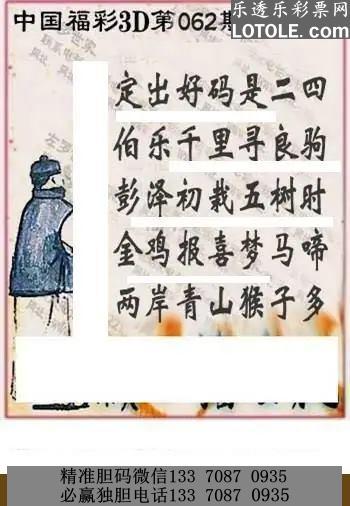 乐透乐彩票网
LOTOLE.COM
中国福彩3D第062期
定出好码是二四
伯乐千里寻良驹
彭泽初栽五树时
金鸡报喜梦马啼
两岸青山猴子多
精准胆码微信133 7087 0935
必赢独胆电话133 7087 0935